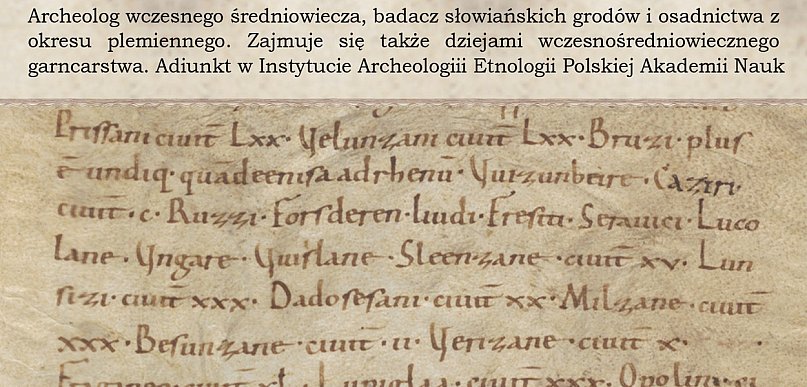 Archeolog wczesnego średniowiecza, badacz słowiańskich grodów i osadnictwa z
okresu plemiennego. Zajmuje się także dziejami wczesnośredniowiecznego
garncarstwa. Adiunkt w Instytucie Archeologiii Etnologii Polskiej Akademii Nauk
Prissani ciuit̄ Lxx. Velunzani ciuit̄ Lxx. Bruzi. plus
ē undiq. quā deenisa adrhenū. Vuizunbeire. Caziri.
ciuit̄. c. Ruzzi. Forsderen. liudi. Fresiti. Serauici. Luco
lane. Vngare. Vuislane. Sleenzane. ciuit̄ xv. Lun
sizi. ciuit̄ xxx. Dadosesani. ciuit̄ xx. Milzane. ciuit̄
xxx. Besunzane. ciuit̄. ii. Verizane. ciuit̄ x.